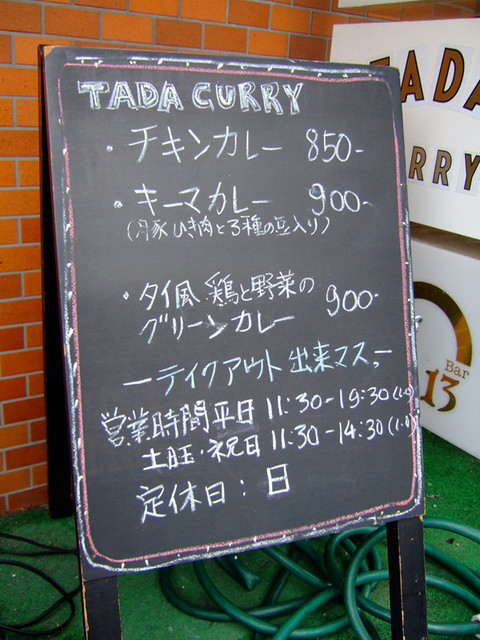 TADA CURRY
・チキンカレー 850-
・キーマカレー 900-
(豚ひき肉と3種の豆入り)
・タイ風 鶏と野菜の
グリーンカレー 900-
ーテイクアウト出来マス。ー
営業時間 平日 11:30-19:30(L.O)
土・祝日 11:30-14:30(L.O)
定休日:日
TADA
RRY
Bar
13